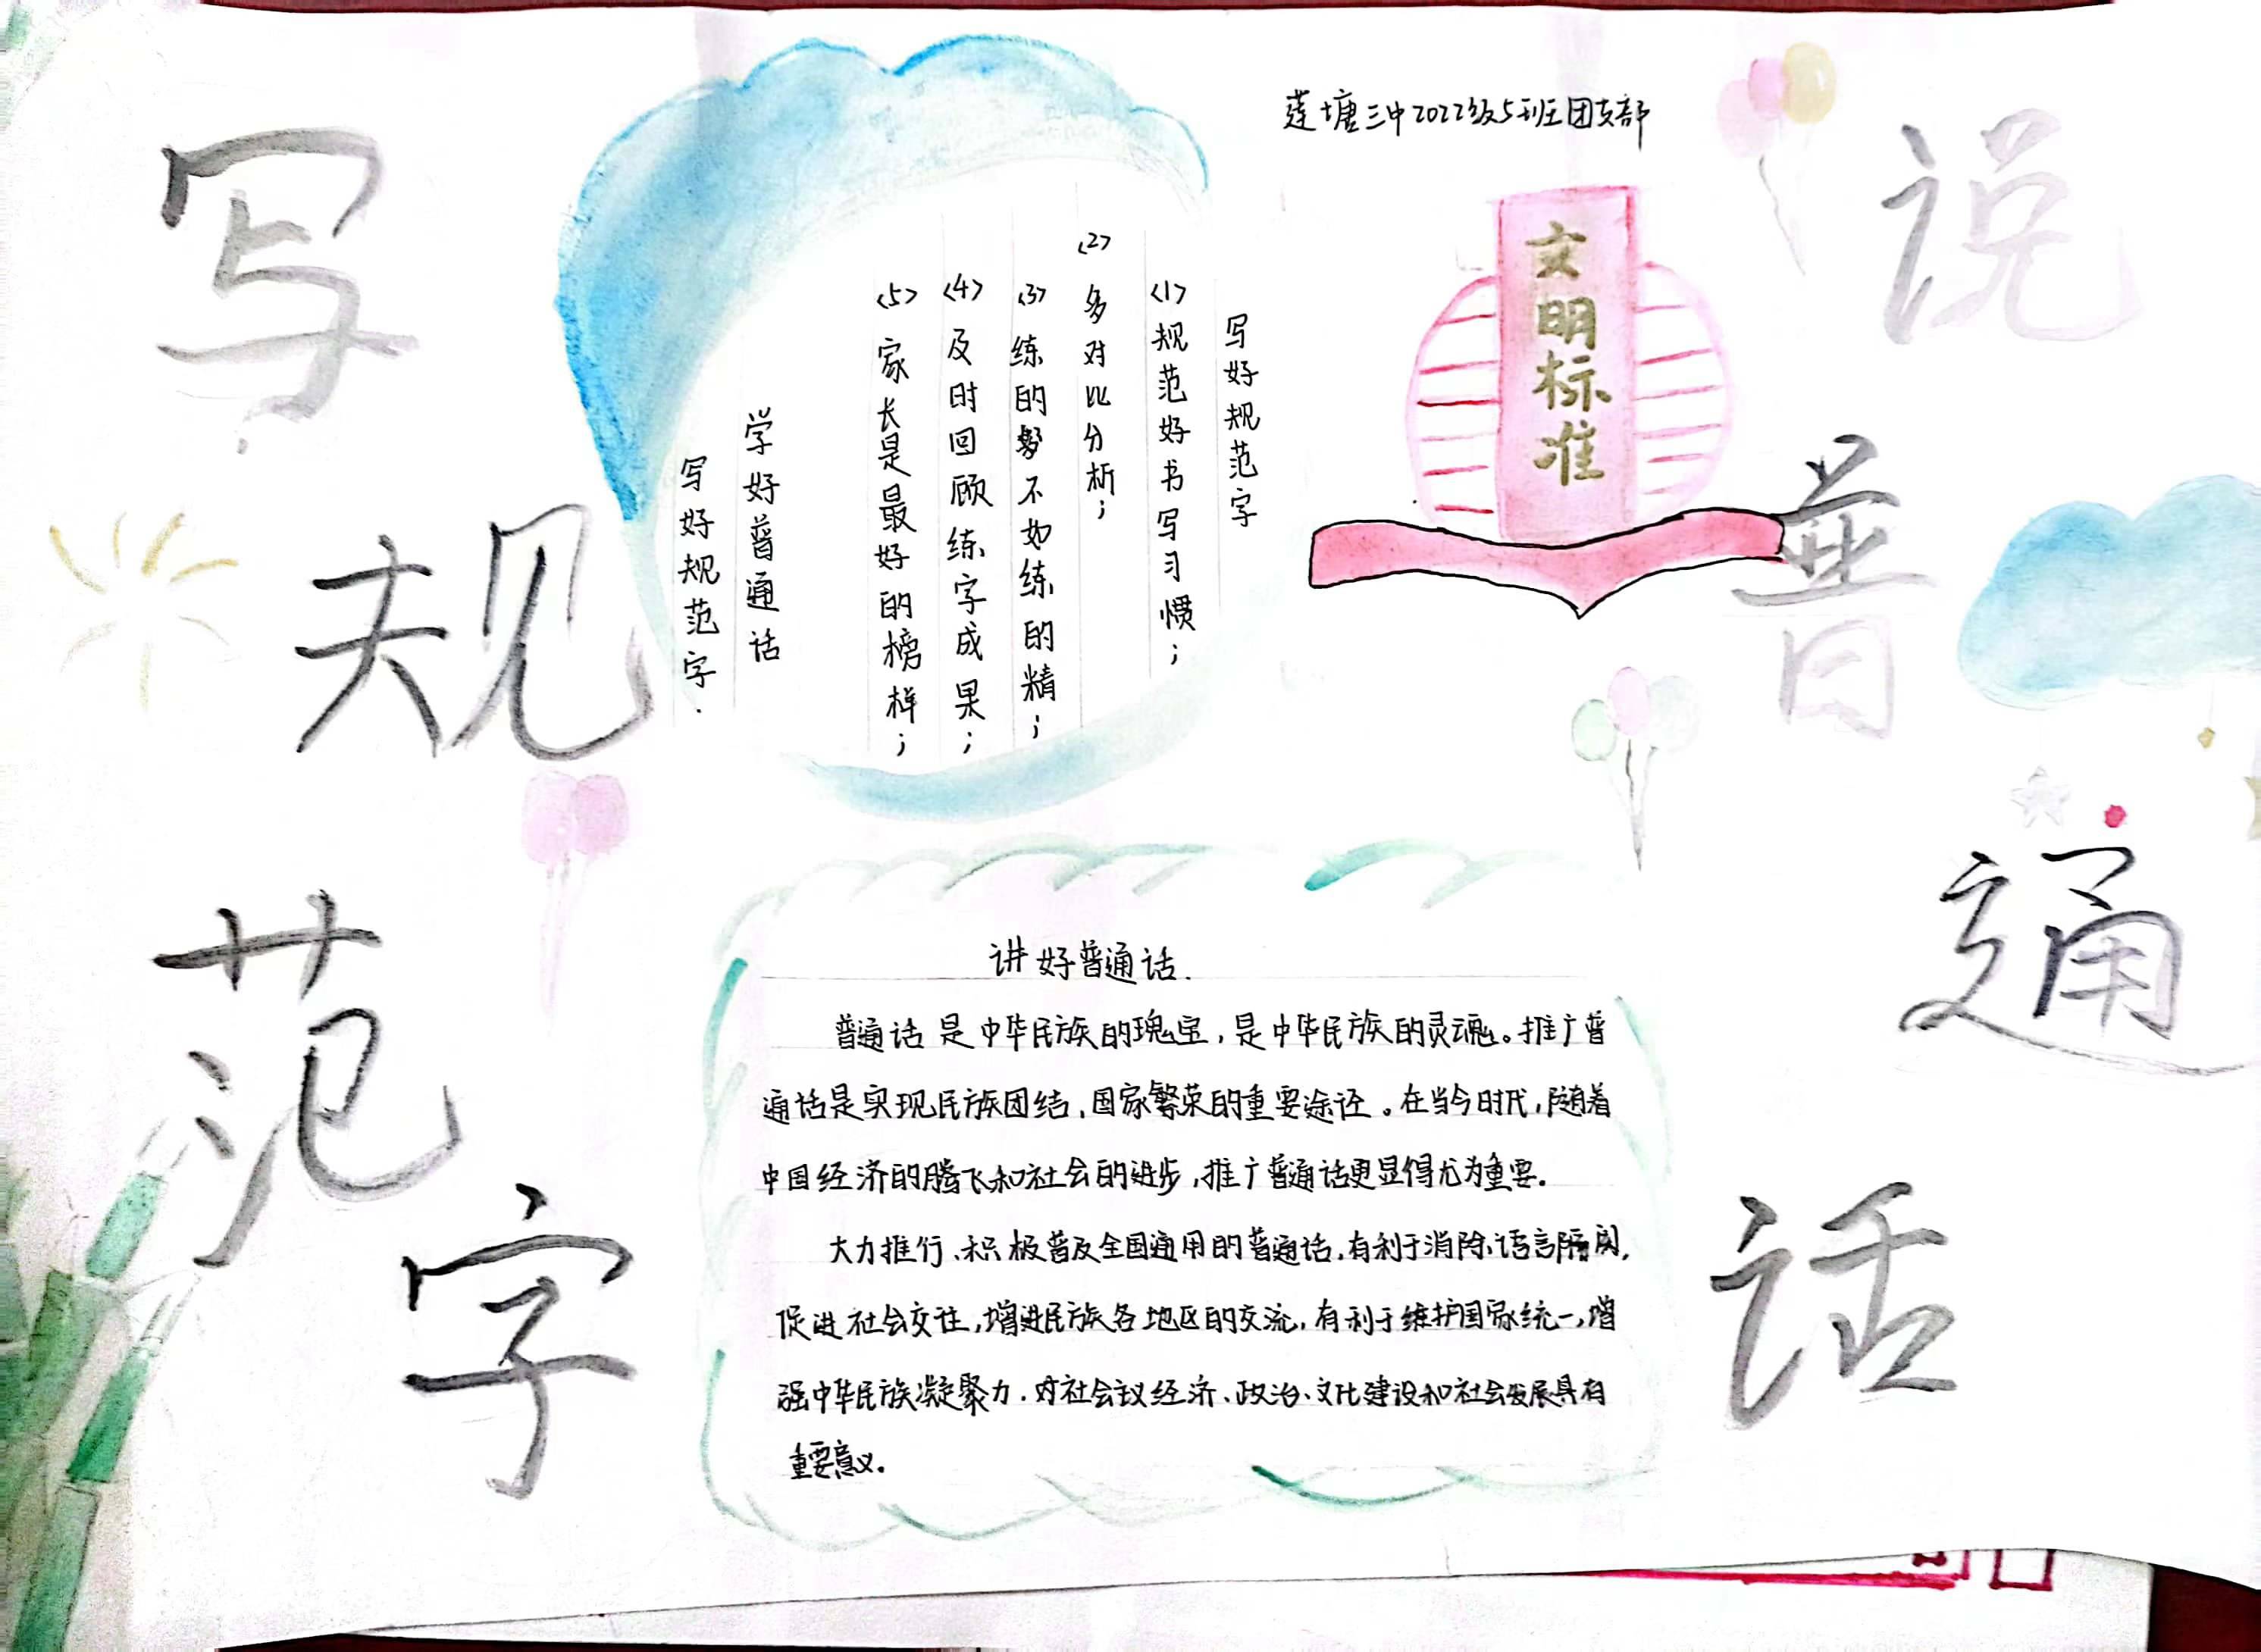 莲塘三中2022级5班团支部
说
普
通
话
写
规
范
字
文明标准
写好规范字
<1>规范好书写习惯；
<2>多对比分析；
<3>练的多不如练的精；
<4>及时回顾练字成果；
<5>家长是最好的榜样；
学好普通话
写好规范字.
讲好普通话.
普通话是中华民族的瑰宝，是中华民族的灵魂。推广普
通话是实现民族团结，国家繁荣的重要途径。在当今时代，随着
中国经济的腾飞和社会的进步，推广普通话更显得尤为重要。
大力推行、积极普及全国通用的普通话，有利于消除语言隔阂，
促进社会交往，增进民族各地区的交流，有利于维护国家统一，增
强中华民族凝聚力.对社会议经济、政治、文化建设和社会发展具有
重要意义。